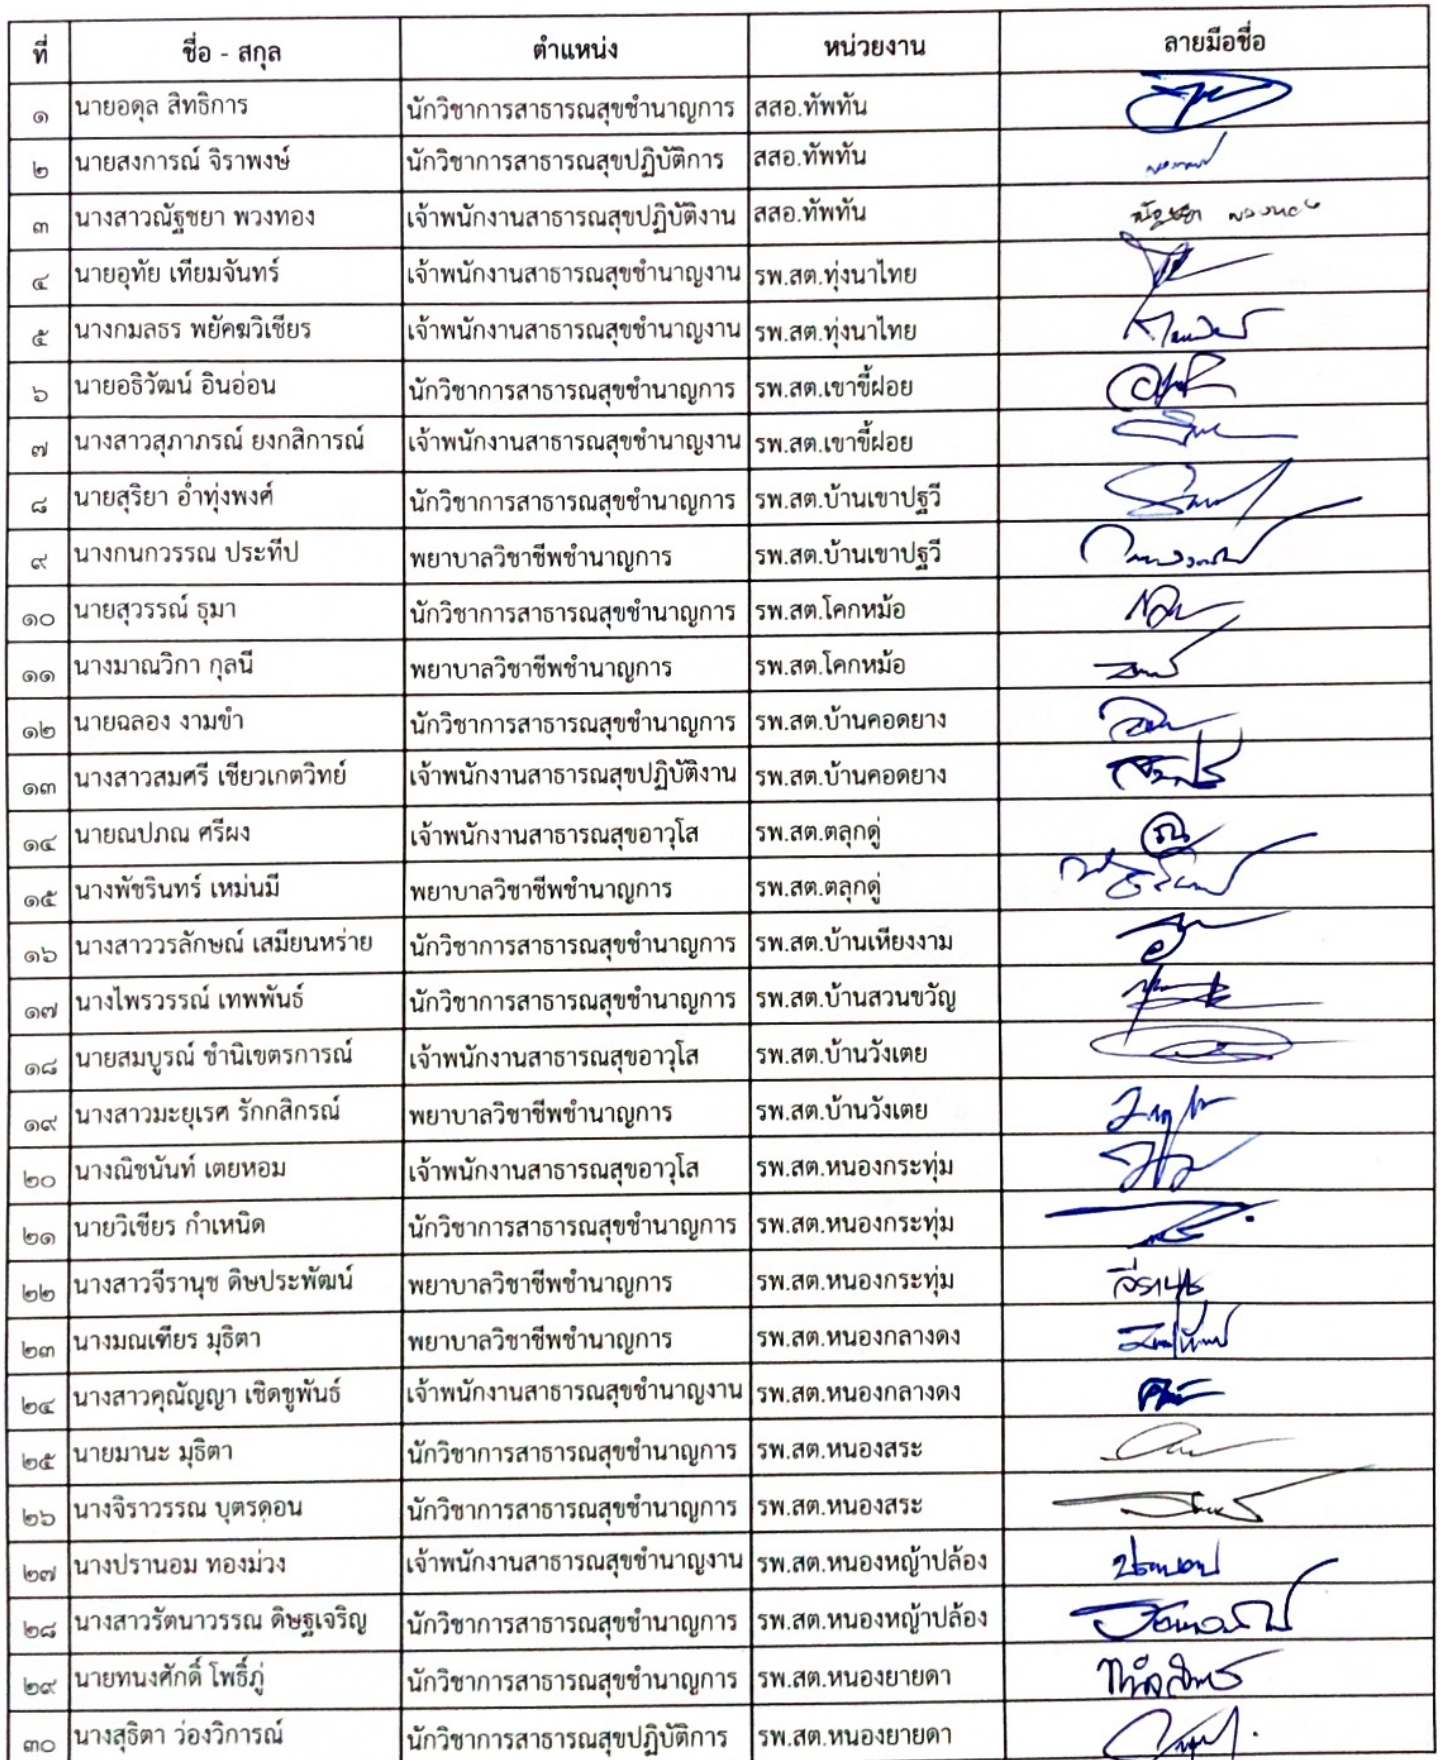 ที่ ชื่อ - สกุล ตำแหน่ง หน่วยงาน ลายมือชื่อ
๑ นายอดุล สิทธิการ นักวิชาการสาธารณสุขชำนาญการ สสอ.ทัพทัน
๒ นายสงการณ์ จิราพงษ์ นักวิชาการสาธารณสุขปฏิบัติการ สสอ.ทัพทัน
๓ นางสาวณัฐชยา พวงทอง เจ้าพนักงานสาธารณสุขปฏิบัติงาน สสอ.ทัพทัน ณัฐชยา พวงทอง
๔ นายอุทัย เทียมจันทร์ เจ้าพนักงานสาธารณสุขชำนาญงาน รพ.สต.ทุ่งนาไทย
๕ นางกมลธร พยัคฆวิเชียร เจ้าพนักงานสาธารณสุขชำนาญงาน รพ.สต.ทุ่งนาไทย
๖ นายอธิวัฒน์ อินอ่อน นักวิชาการสาธารณสุขชำนาญการ รพ.สต.เขาขี้ฝอย
๗ นางสาวสุภาภรณ์ ยงกสิการณ์ เจ้าพนักงานสาธารณสุขชำนาญงาน รพ.สต.เขาขี้ฝอย
๘ นายสุริยา อ่ำทุ่งพงศ์ นักวิชาการสาธารณสุขชำนาญการ รพ.สต.บ้านเขาปฐวี
๙ นางกนกวรรณ ประทีป พยาบาลวิชาชีพชำนาญการ รพ.สต.บ้านเขาปฐวี
๑๐ นายสุวรรณ์ ธุมา นักวิชาการสาธารณสุขชำนาญการ รพ.สต.โคกหม้อ
๑๑ นางมาณวิกา กุลนี พยาบาลวิชาชีพชำนาญการ รพ.สต.โคกหม้อ
๑๒ นายฉลอง งามขำ นักวิชาการสาธารณสุขชำนาญการ รพ.สต.บ้านคอดยาง
๑๓ นางสาวสมศรี เชียวเกตวิทย์ เจ้าพนักงานสาธารณสุขปฏิบัติงาน รพ.สต.บ้านคอดยาง
๑๔ นายณปภณ ศรีผง เจ้าพนักงานสาธารณสุขอาวุโส รพ.สต.ตลุกดู่
๑๕ นางพัชรินทร์ เหม่นมี พยาบาลวิชาชีพชำนาญการ รพ.สต.ตลุกดู่
๑๖ นางสาววรลักษณ์ เสมียนหร่าย นักวิชาการสาธารณสุขชำนาญการ รพ.สต.บ้านเหียงงาม
๑๗ นางไพรวรรณ์ เทพพันธ์ นักวิชาการสาธารณสุขชำนาญการ รพ.สต.บ้านสวนขวัญ
๑๘ นายสมบูรณ์ ชำนิเขตรการณ์ เจ้าพนักงานสาธารณสุขอาวุโส รพ.สต.บ้านวังเตย
๑๙ นางสาวมะยุเรศ รักกสิกรณ์ พยาบาลวิชาชีพชำนาญการ รพ.สต.บ้านวังเตย
๒๐ นางณิชนันท์ เตยหอม เจ้าพนักงานสาธารณสุขอาวุโส รพ.สต.หนองกระทุ่ม
๒๑ นายวิเชียร กำเหนิด นักวิชาการสาธารณสุขชำนาญการ รพ.สต.หนองกระทุ่ม
๒๒ นางสาวจีรานุช ดิษประพัฒน์ พยาบาลวิชาชีพชำนาญการ รพ.สต.หนองกระทุ่ม จีรานุช
๒๓ นางมณเฑียร มุธิตา พยาบาลวิชาชีพชำนาญการ รพ.สต.หนองกลางดง
๒๔ นางสาวคุณัญญา เชิดชูพันธ์ เจ้าพนักงานสาธารณสุขชำนาญงาน รพ.สต.หนองกลางดง
๒๕ นายมานะ มุธิตา นักวิชาการสาธารณสุขชำนาญการ รพ.สต.หนองสระ
๒๖ นางจิราวรรณ บุตรดอน นักวิชาการสาธารณสุขชำนาญการ รพ.สต.หนองสระ
๒๗ นางปรานอม ทองม่วง เจ้าพนักงานสาธารณสุขชำนาญงาน รพ.สต.หนองหญ้าปล้อง ปรานอม
๒๘ นางสาวรัตนาวรรณ ดิษฐเจริญ นักวิชาการสาธารณสุขชำนาญการ รพ.สต.หนองหญ้าปล้อง
๒๙ นายทนงศักดิ์ โพธิ์ภู่ นักวิชาการสาธารณสุขชำนาญการ รพ.สต.หนองยายดา
๓๐ นางสุธิตา ว่องวิการณ์ นักวิชาการสาธารณสุขปฏิบัติการ รพ.สต.หนองยายดา